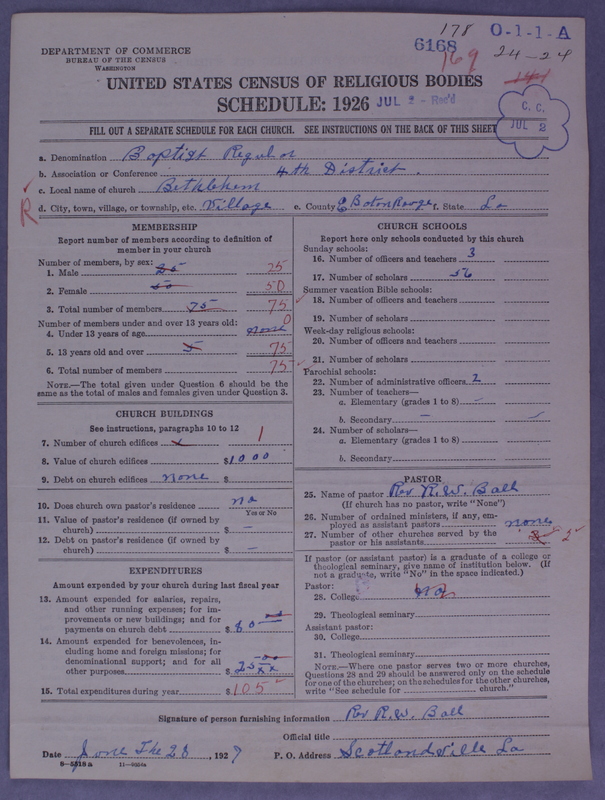 178 O-1-1-A
6168 169 24-24
DEPARTMENT OF COMMERCE
BUREAU OF THE CENSUS
WASHINGTON
UNITED STATES CENSUS OF RELIGIOUS BODIES
SCHEDULE: 1926 JUL 2 - Rec'd
C. C.
JUL 2
FILL OUT A SEPARATE SCHEDULE FOR EACH CHURCH. SEE INSTRUCTIONS ON THE BACK OF THIS SHEET
a. Denomination Baptist Regular
b. Association or Conference 4th District.
c. Local name of church Bethlehem
R d. City, town, village, or township, etc. Village e. County E Baton Rouge f. State La
MEMBERSHIP
Report number of members according to definition of
member in your church
Number of members, by sex:
1. Male 25 25
2. Female 50 50
3. Total number of members 75 75
Number of members under and over 13 years old: 0
4. Under 13 years of age none
5. 13 years old and over 5 75
6. Total number of members 75
NOTE.—The total given under Question 6 should be
same as the total of males and females given under Question 3.
CHURCH BUILDINGS
See instructions, paragraphs 10 to 12
7. Number of church edifices 1
8. Value of church edifices $1000
9. Debt on church edifices none $
10. Does church own pastor's residence no
Yes or No
11. Value of pastor's residence (if owned by
church) $ —
12. Debt on pastor's residence (if owned by
church) $ —
EXPENDITURES
Amount expended by your church during last fiscal year
13. Amount expended for salaries, repairs,
and other running expenses; for im-
provements or new buildings; and for
payments on church debt $ 80
14. Amount expended for benevolences, in-
cluding home and foreign missions; for
denominational support; and for all
other purposes $ 25 xx
15. Total expenditures during year $ 105
CHURCH SCHOOLS
Report here only schools conducted by this church
Sunday schools:
16. Number of officers and teachers 3
17. Number of scholars 56
Summer vacation Bible schools:
18. Number of officers and teachers
19. Number of scholars
Week-day religious schools:
20. Number of officers and teachers
21. Number of scholars
Parochial schools:
22. Number of administrative officers 2
23. Number of teachers—
a. Elementary (grades 1 to 8) —
b. Secondary —
24. Number of scholars—
a. Elementary (grades 1 to 8)
b. Secondary
PASTOR
25. Name of pastor Rev R.W. Ball
(If church has no pastor, write "None")
26. Number of ordained ministers, if any, em-
ployed as assistant pastors none
27. Number of other churches served by the
pastor or his assistants 2
If pastor (or assistant pastor) is a graduate of a college or
theological seminary, give name of institution below. (If
not a graduate, write "No" in the space indicated.)
Pastor:
28. College no
29. Theological seminary
Assistant pastor:
30. College
31. Theological seminary
NOTE.—Where one pastor serves two or more churches,
Questions 28 and 29 should be answered only on the schedule
for one of the churches; on the schedules for the other churches,
write "See schedule for church."
Signature of person furnishing information Rev R.W. Ball
Official title
Date June The 28, 1927 P. O. Address Scotlandville La
8-5518a 11-9504a